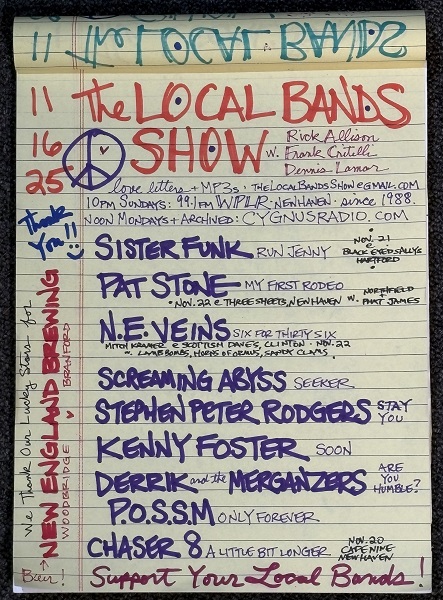 11 The LOCAL BANDS
11 The LOCAL BANDS
16 SHOW w. Rick Allison
Frank Critelli
25 Dennis Lamar
love letters + MP3s: THELOCALBANDSSHOW@GMAIL.COM
10PM SUNDAYS: 99.1FM WPLR · NEW HAVEN · since 1988.
NOON MONDAYS + ARCHIVED: CYGNUSRADIO.COM
Thank You!!
SISTER FUNK RUN JENNY NOV. 21
@
BLACK EYED SALLY'S
HARTFORD
PAT STONE MY FIRST RODEO
• NOV. 22 @ THREE SHEETS, NEW HAVEN w. NORTHFIELD
+
PHAT JAMES
N.E. VEINS SIX FOR THIRTY SIX
MITCH KRAMER @ SCOTTISH DAVE'S, CLINTON · NOV. 22
w. LAMB BOMBS, HORNS OF ORMUS, SANDY CLAMS
SCREAMING ABYSS SEEKER
STEPHEN PETER RODGERS STAY
YOU
KENNY FOSTER SOON
DERRIK and the MERGANZERS ARE
YOU
HUMBLE?
P.O.S.S.M ONLY FOREVER
CHASER 8 A LITTLE BIT LONGER NOV. 20
CAFE NINE
NEW HAVEN
Support Your Local Bands!
We Thank Our Lucky Stars for
NEW ENGLAND BREWING
WOODBRIDGE
BRANFORD
Beer!